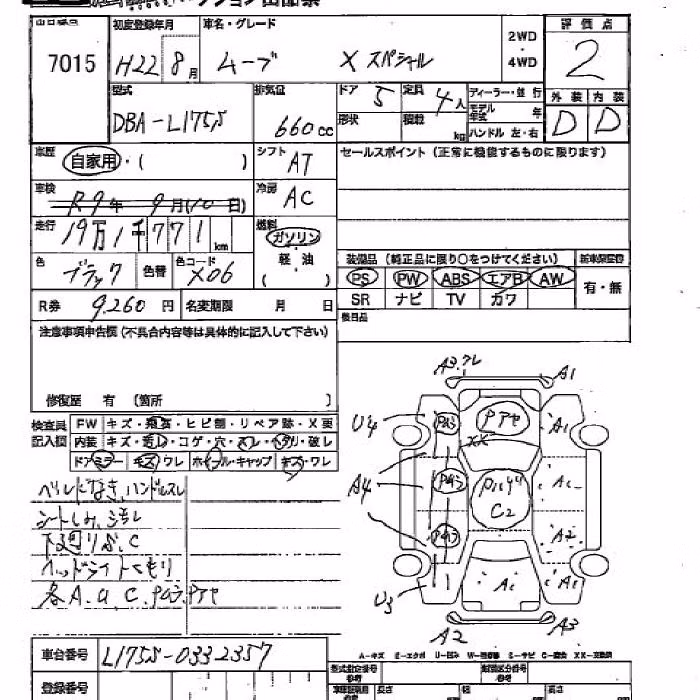 出品番号 初度登録年月 車名・グレード 2WD・4WD 評価点
7015 H22 8月 ムーブ X スペシャル 2
型式 排気量 ドア 定員 ディーラー・並行 外装 内装
DBA-L175S 660cc 5 4人 モデル年式 年 D D
形状 積載 kg ハンドル 左・右
車歴 自家用・( ) シフト AT セールスポイント(正常に機能するものに限ります)
車検 R9年9月(10日) 冷房 AC
走行 19万1千771km 燃料 ガソリン
軽油
( )
色 ブラック 色替 色コード X06
装備品(純正品に限り〇をつけてください)
PS PW ABS エアB AW 有・無
SR ナビ TV カワ
R券 9,260円 名変期限 月 日
後日品
注意事項申告欄(不具合内容等は具体的に記入して下さい)
修復歴 有(箇所 )
検査員記入欄 FW キズ・飛石・ヒビ割・リペア跡・X要
内装 キズ・汚レ・コゲ・穴・スレ・ヘタリ・破レ
ドアミラー キズ・ワレ ホイール・キャップ キズ・ワレ
シートしみ、汚れ
ヘッドライトくもり
A3 A1
U4 A1
XX
A4
C2
A2
U3
A2 A3
A-キズ E-エクボ U-凹み W-補修跡 S-サビ C-腐蝕 XX-交換済
車台番号 L175S-0332357
登録番号
型式指定番号 類別区分番号
長さ 幅 高さ